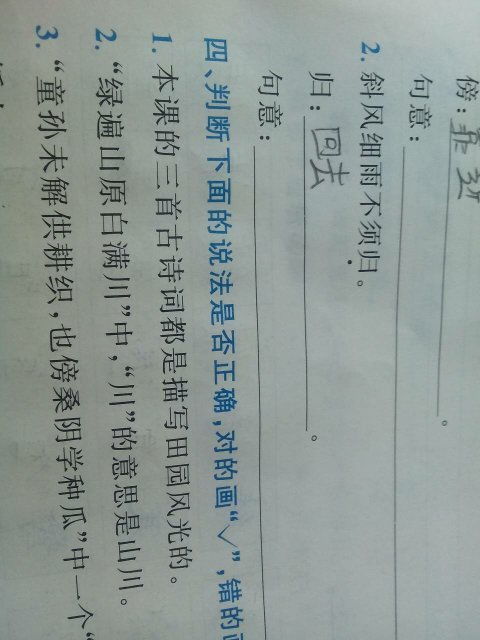 傍：靠近。
句意：
2.斜风细雨不须归。
归：回去。
句意：
四、判断下面的说法是否正确，对的画“√”，错的画
1.本课的三首古诗词都是描写田园风光的。
2.“绿遍山原白满川”中，“川”的意思是山川。
3.“童孙未解供耕织，也傍桑阴学种瓜”中一个“